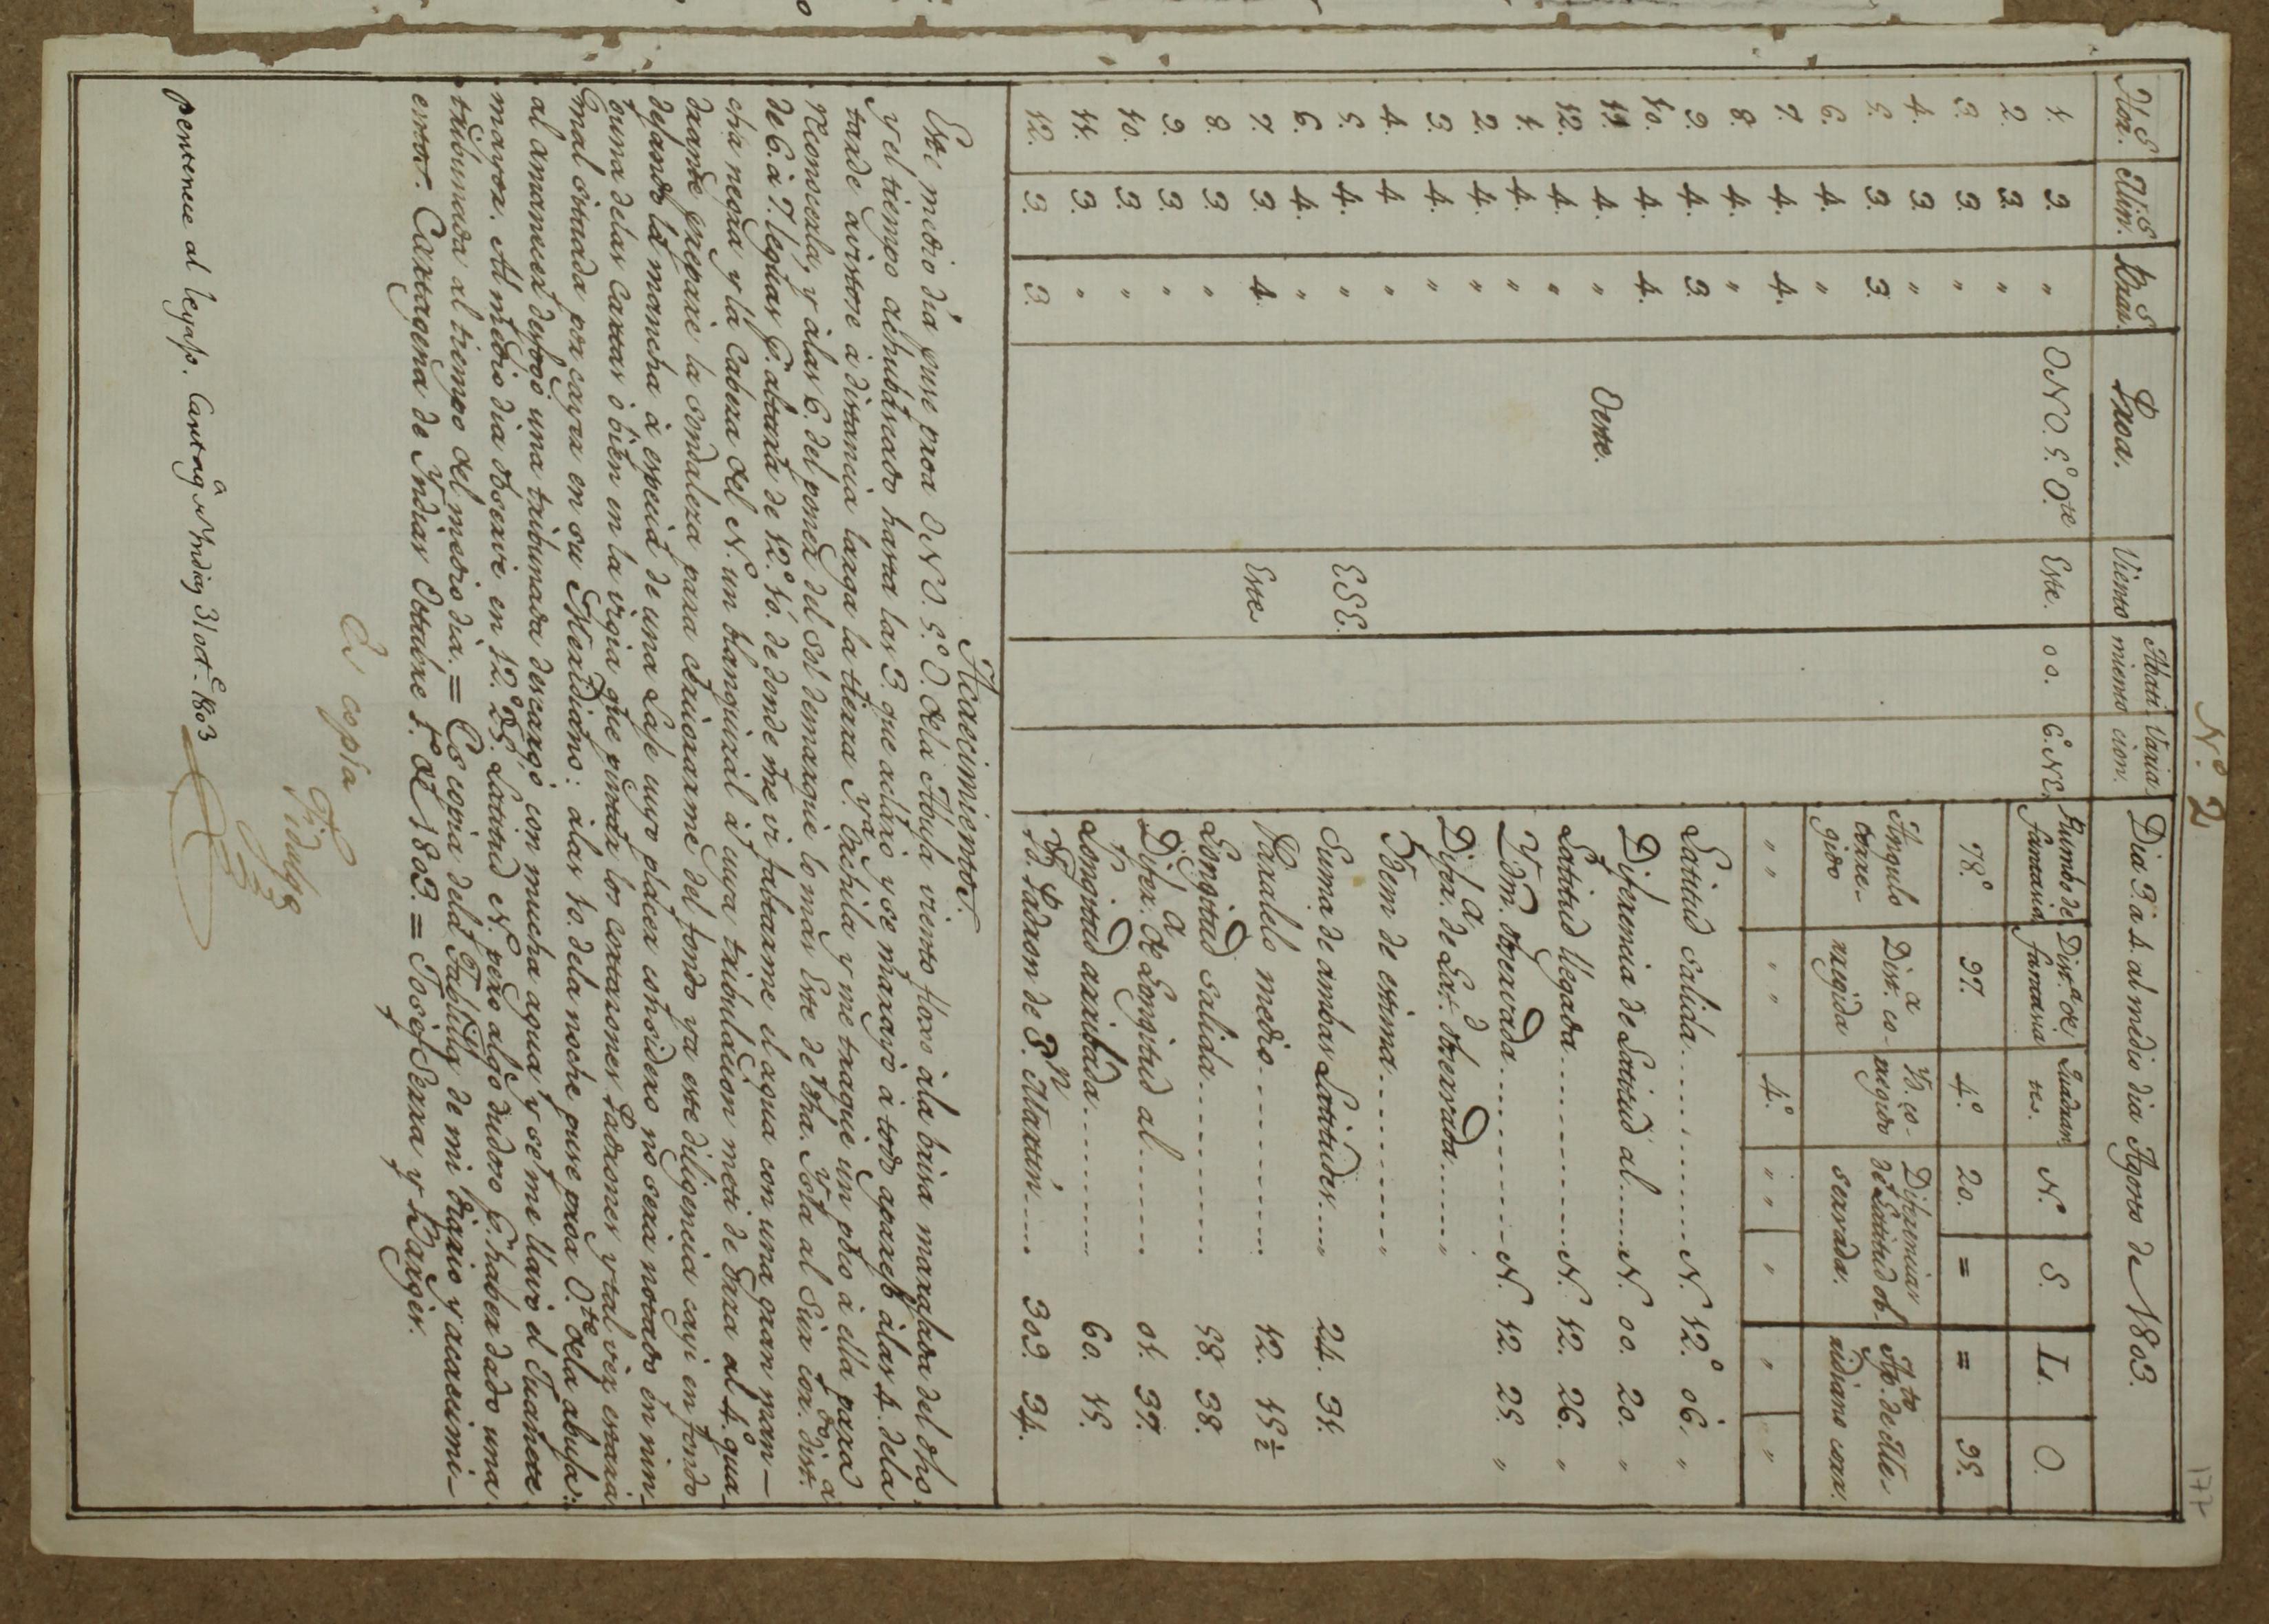 N.º 2
177
H.S Hor. | M.S Min. | B.S Braz. | Proa. | Viento | Abatimiento | Variacion. | Dia 3. â 4. al medio dia Agosto de 1803.
1. 3. " ONO. 5.º O.te Este. 00. 6. NE.
2. 3. "
3. 3. "
4. 3. "
5. 3. 3.
6. 4. "
7. 4. 4.
8. 4. "
9. 4. 3.
10. 4. 4.
11. 4. " Oeste.
12. 4. "
1. 4. "
2. 4. "
3. 4. "
4. 4. "
5. 4. " ESE.
6. 4. "
7. 3. 4. Este
8. 3. "
9. 3. "
10. 3. "
11. 3. "
12. 3. 3.
Rumbo de fantasia | Dist.a de fantasia | Quadrantes. | N. | S. | L. | O.
78.º | 97. | 4.º | 20. | = | = | 95.
Angulo corregido | Dist.a corregida | ½ corregido | Diferencias de Latitud observada. | Ap.to de Meridiano corr.
" " | " " | 4.º | " " | " | " | "
Latitud salida.......... N. 12.º 06. "
Diferencia de Latitud al..... N. 00. 20. "
Latitud llegada.......... N. 12. 26. "
Ydm. observada.......... N. 12. 25. "
Difer.a de Lat.d observada..... "
Ydem de estima.......... "
Suma de ambas Latitudes.... " 24. 31.
Paralelo medio.......... 12. 15½
Longitud salida.......... 58. 38.
Difer.a de Longitud al........ 01. 37.
Longitud arribada.......... 60. 15.
Padron de S.n Martin..... 303. 34.
Acaecimientos.
Este medio dia puse proa ONO. 5.º O. dela Abuja viento floxo àla brisa marejada del dho
y el tiempo achubascado hasta las 3. que aclaró y se marayó à todo aparejo àlas 4. dela
tarde avistose à distancia larga la tierra y me traquie un poco à ella para
reconocerla, y àlas 6. del poner del Sol demarquie lo mas Este de dha. Ysla al Sur cor.do dist.a
de 6. à 7. leguas G. altura de 12.º 10. de donde me vi saltarme el agua con una gran man-
cha negra y la Cabeza del N. un blanquizal à cuya tribulacion meti de Orza al 4.º qua-
drante prepare la sondaleza para cerciorarme del fondo ya este diligencia cayi en fondo
dejando la mancha à especie de una Laje cuyo placer considero no sera notado en nin-
guna delas cartas ò bien en la virgia que pintan los cortazones Padrones y tal vez estará
mal situada por cayer en su Meridiano: àlas 10. dela noche puse proa O.te dela abuja:
al amanecer desfogó una tribunada descargó con mucha agua y se me llavó el Juanete
mayor. Al medio dia observe en 12.º 25. Latitud N. pero algo dudoso p.r haber dado una
tribunada al tiempo del medio dia. = Es copia dela Tablilla de mi diario y acaecimi-
entos. Cartagena de Yndias Octubre 1.º de 1803. = Josef Serra y Barger.
Es copia
Fidalgo
Pertenece al legajo. Cartag.a de Yndias 31 oct.e 1803